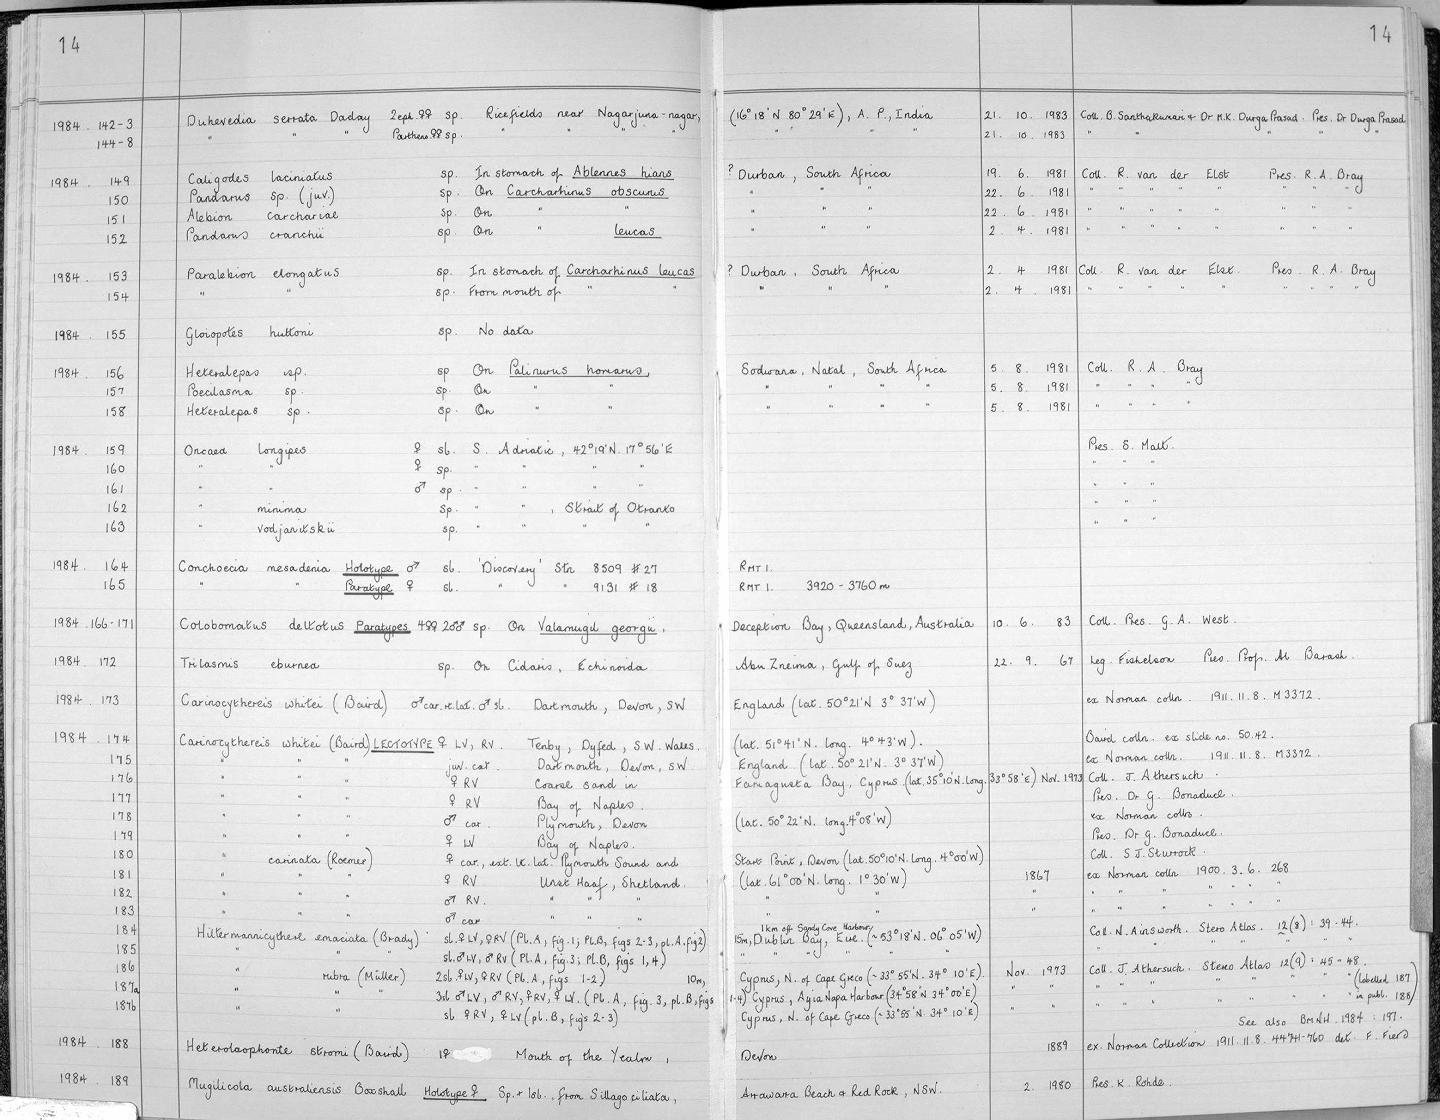 14 14
1984 . 142-3 Duhevedia serrata Daday 2eph.♀♀ sp. Ricefields near Nagarjuna-nagar, (16°18'N 80°29'E), A. P., India 21. 10. 1983 Coll. B. Santhakumari & Dr M.K. Durga Prasad. Pres. Dr Durga Prasad
144-8 " " " Partheno.♀♀ sp. " " " " " " " 21. 10. 1983 " " " " "
1984 . 149 Caligodes laciniatus sp. In stomach of Ablennes hians ? Durban, South Africa 19. 6. 1981 Coll. R. van der Elst Pres. R.A. Bray
150 Pandarus sp. (juv.) sp. On Carcharhinus obscurus " " " 22. 6. 1981 " " " " " " "
151 Alebion carchariae sp. On " " " " " 22. 6. 1981 " " " " " " "
152 Pandarus cranchii sp. On " leucas " " " 2. 4. 1981 " " " " " " "
1984 . 153 Paralebion elongatus sp. In stomach of Carcharhinus leucas ? Durban, South Africa 2. 4 1981 Coll. R. van der Elst. Pres. R.A. Bray
154 " " sp. From mouth of " " " " " 2. 4. 1981 " " " " " " " "
1984 . 155 Gloiopotes huttoni sp. No data
1984 . 156 Heteralepas sp. sp On Palinurus homarus, Sodwana, Natal, South Africa 5. 8. 1981 Coll. R. A. Bray
157 Poecilasma sp. sp. On " " " " " " 5. 8. 1981 " " " "
158 Heteralepas sp. sp. On " " " " " " 5. 8. 1981 " " " "
1984 . 159 Oncaea longipes ♀ sl. S. Adriatic, 42°19'N. 17°56'E Pres. S. Malt.
160 " " ♀ sp. " " " " " " "
161 " " ♂ sp. " " " " " " "
162 " minima sp. " " , Strait of Otranto " " "
163 " vodjanitskii sp. " " " " " " "
1984 . 164 Conchoecia mesadenia Holotype ♂ sl. 'Discovery' Stn 8509 #27 RMT 1.
165 " " Paratype ♀ sl. " " 9131 # 18 RMT 1. 3920 - 3760 m
1984 . 166-171 Colobomatus deltotus Paratypes 4♀♀ 2♂♂ sp. On Valamugil georgii, Deception Bay, Queensland, Australia 10. 6. 83 Coll. Pres. G. A. West.
1984 . 172 Trilasmis eburnea sp. On Cidaris, Echinoida Abu Zneima, Gulf of Suez 22. 9. 67 Leg. Fishelson Pres. Prof. Al Barash.
1984 . 173 Carinocythereis whitei (Baird) ♂car.rt.lat. ♂ sl. Dartmouth, Devon, SW England (lat. 50°21'N 3° 37'W) ex Norman colln. 1911. 11. 8. M3372.
1984 . 174 Carinocythereis whitei (Baird) LECTOTYPE ♀ LV, RV. Tenby, Dyfed, S.W. Wales. (lat. 51°41'N. long. 4°43'W). Baird colln. ex slide no. 50.42.
175 " " " juv. car. Dartmouth, Devon, SW England (lat. 50°21'N. 3°37'W) ex Norman colln. 1911. 11. 8. M3372.
176 " " " ♀ RV Coarse sand in Famagusta Bay, Cyprus (lat. 35°10'N. long. 33°58'E) Nov. 1973 Coll. J. Athersuch.
177 " " " ♀ RV Bay of Naples. Pres. Dr G. Bonaduce.
178 " " " ♂ car. Plymouth, Devon (lat. 50°22'N. long. 4°08'W) ex Norman colln.
179 " " " ♀ LV Bay of Naples. Pres. Dr G. Bonaduce.
180 " carinata (Roemer) ♀ car., ext. lt. lat. Plymouth Sound and Start Point, Devon (lat. 50°10'N. Long. 4°00'W) Coll. S J. Sturrock.
181 " " " ♀ RV Unst Haaf, Shetland. (lat. 61°00'N. long. 1°30'W) 1867 ex Norman colln 1900. 3. 6. 268
182 " " " ♂ RV. " " " " " " " " " " "
183 " " " ♂ car " " " " " " " " " " "
184 Hiltermannicythere emaciata (Brady) sl.♀LV, ♀RV (Pl.A, fig.1; Pl.B, figs 2-3, pl.A.fig2) 15m, 1km off Sandy Cove Harbour, Dublin Bay, Eire. (~53°18'N. 06°05'W) Coll. N. Ainsworth. Stero Atlas. 12(8): 39-44.
185 " " " sl.♂LV, ♂RV (Pl.A, fig.3; Pl.B, figs 1,4) " " " " " " " " " " "
186 " rubra (Müller) 2sl.♀LV, ♀RV (Pl.A, figs 1-2) 10m, Cyprus, N. of Cape Greco (~33°55'N. 34° 10'E) Nov. 1973 Coll. J. Athersuch. Stereo Atlas 12(9): 45-48.
187a " " " 3sl ♂LV, ♂RV, ♀RV, ♀LV. (Pl.A, fig. 3, pl.B, figs 1-4) Cyprus, Agia Napa Harbour (34°58'N 34°00'E) " " " " " " " (labelled 187
187b " " " sl ♀RV, ♀LV (pl.B, figs 2-3) Cyprus, N. of Cape Greco (~33°55'N. 34° 10'E) " " " " " " in publ. 188)
See also BMNH. 1984 : 197.
1984 . 188 Heterolaophonte stromi (Baird) 1♀ Mouth of the Yealm, Devon 1889 ex. Norman Collection 1911. 11. 8. 44741-760 det. F. Fiers
1984 . 189 Mugilicola australiensis Boxshall Holotype ♀ Sp. + 1sl., from Sillago ciliata, Arrawarra Beach & Red Rock, NSW. 2. 1980 Pres. K. Rohde.